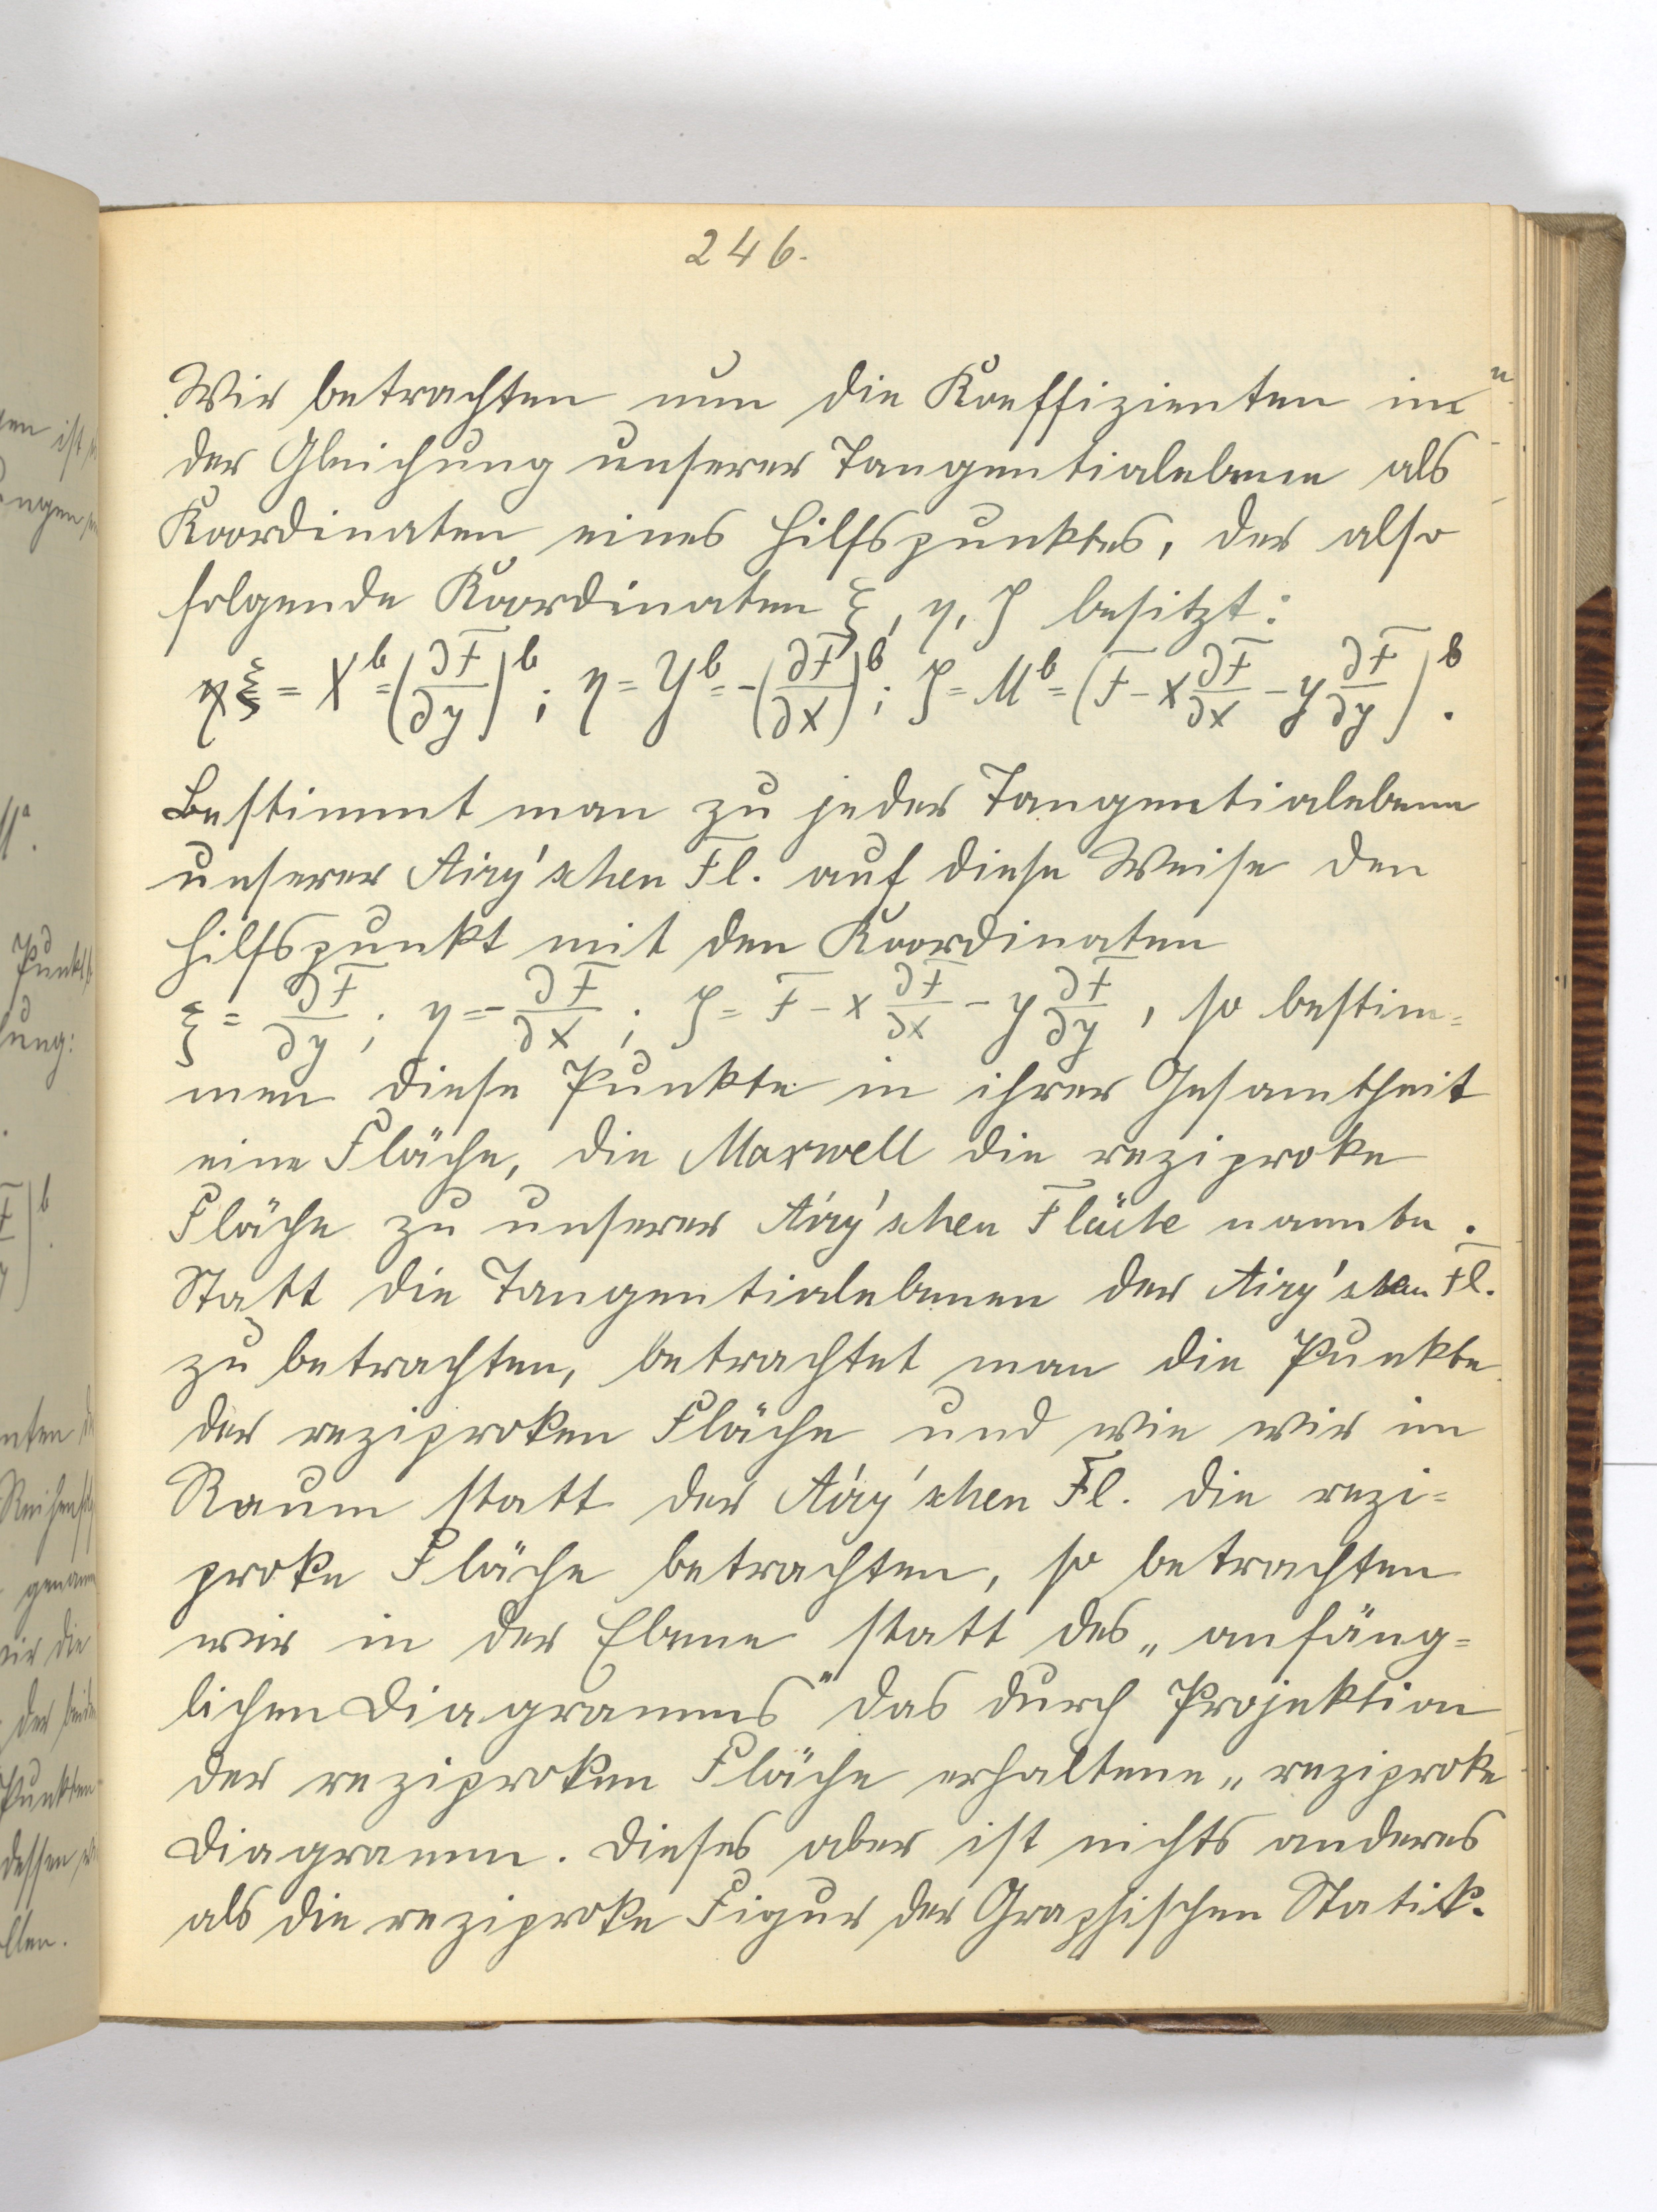 246.
Wir betrachten nun die Koeffizienten in
der Gleichung unserer Tangentialebene als
Koordinaten eines Hilfspunktes, der also
folgende Koordinaten ξ, η, ζ besitzt:
ξ = X^b = (∂F/∂y)^b; η = Y^b = -(∂F/∂x)^b; ζ = M^b = (F - x ∂F/∂x - y ∂F/∂y)^b.
Bestimmt man zu jeder Tangentialebene
unserer Airy'schen Fl. auf diese Weise den
Hilfspunkt mit den Koordinaten
ξ = ∂F/∂y; η = -∂F/∂x; ζ = F - x ∂F/∂x - y ∂F/∂y, so bestim=
men diese Punkte in ihrer Gesamtheit
eine Fläche, die Maxwell die reziproke
Fläche zu unserer Airy'schen Fläche nannte.
Statt die Tangentialebenen der Airy'schen Fl.
zu betrachten, betrachtet man die Punkte
der reziproken Fläche und wie wir im
Raum statt der Airy'schen Fl. die rezi=
proke Fläche betrachten, so betrachten
wir in der Ebene statt des „anfäng=
lichen Diagramms" das durch Projektion
der reziproken Fläche erhaltene „reziproke
Diagramm. Dieses aber ist nichts anderes
als die reziproke Figur der Graphischen Statik.